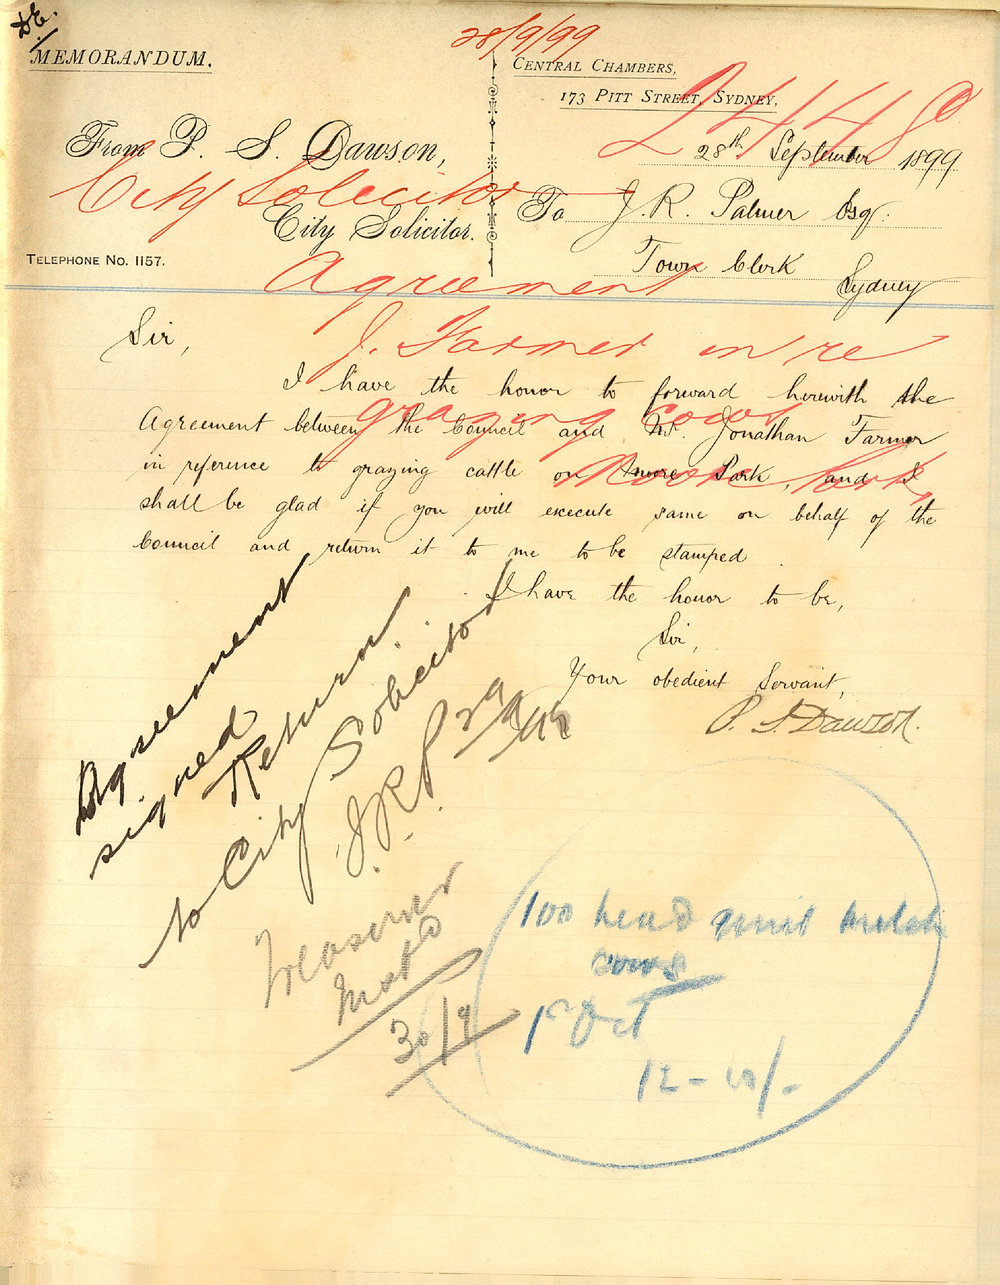 DE.
MEMORANDUM.
28/9/99
CENTRAL CHAMBERS,
173 PITT STREET, SYDNEY,
28th September 1899
From P. S. Dawson,
City Solicitor.
City Solicitor
TELEPHONE No. 1157.
To J. R. Palmer Esq.
Town Clerk
Sydney
Agreement
J. Farmer in re
grazing cows
Moore Park,
Sir,
I have the honor to forward herewith the
Agreement between the Council and Mr. Jonathan Farmer
in reference to grazing cattle on Moore Park, and I
shall be glad if you will execute same on behalf of the
Council and return it to me to be stamped
I have the honor to be,
Sir,
Your obedient Servant,
P. S. Dawson.
Agreement
signed
Return
to City Solicitor
J.R.P. 29/9/99
Treasurer
30/9
100 head milch
cows
1st Oct
12 -